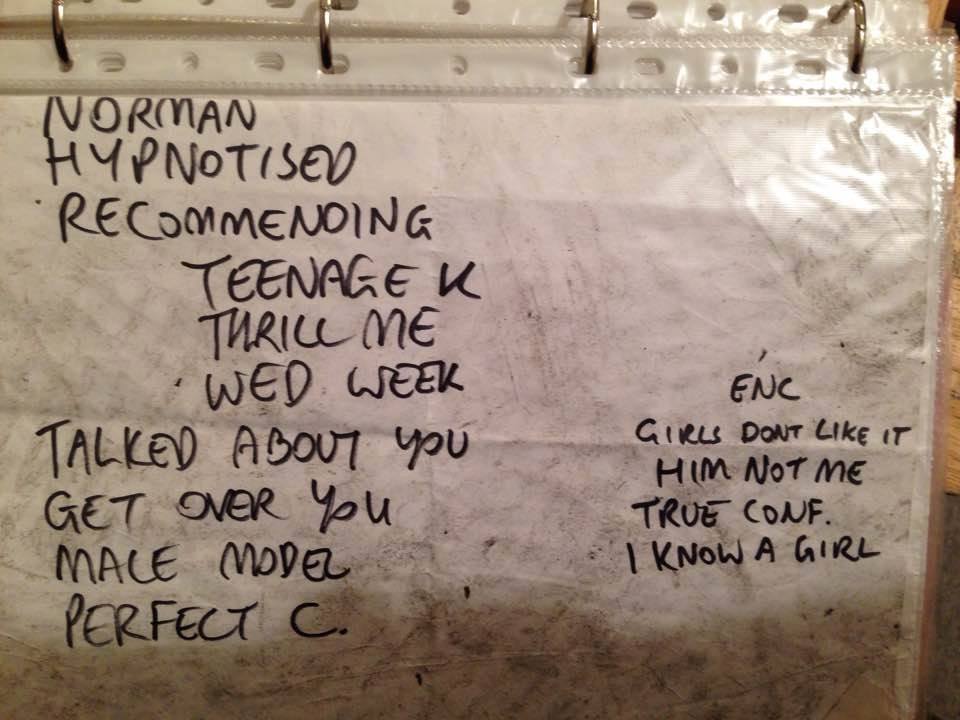 NORMAN
HYPNOTISED
RECOMMENDING
TEENAGE K
THRILL ME
WED WEEK
TALKED ABOUT YOU
GET OVER YOU
MALE MODEL
PERFECT C.
ENC
GIRLS DONT LIKE IT
HIM NOT ME
TRUE CONF.
I KNOW A GIRL